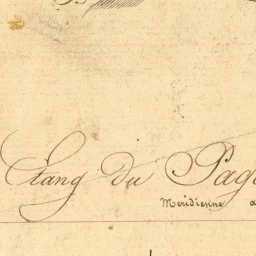 Etang du Pag
Méridienne